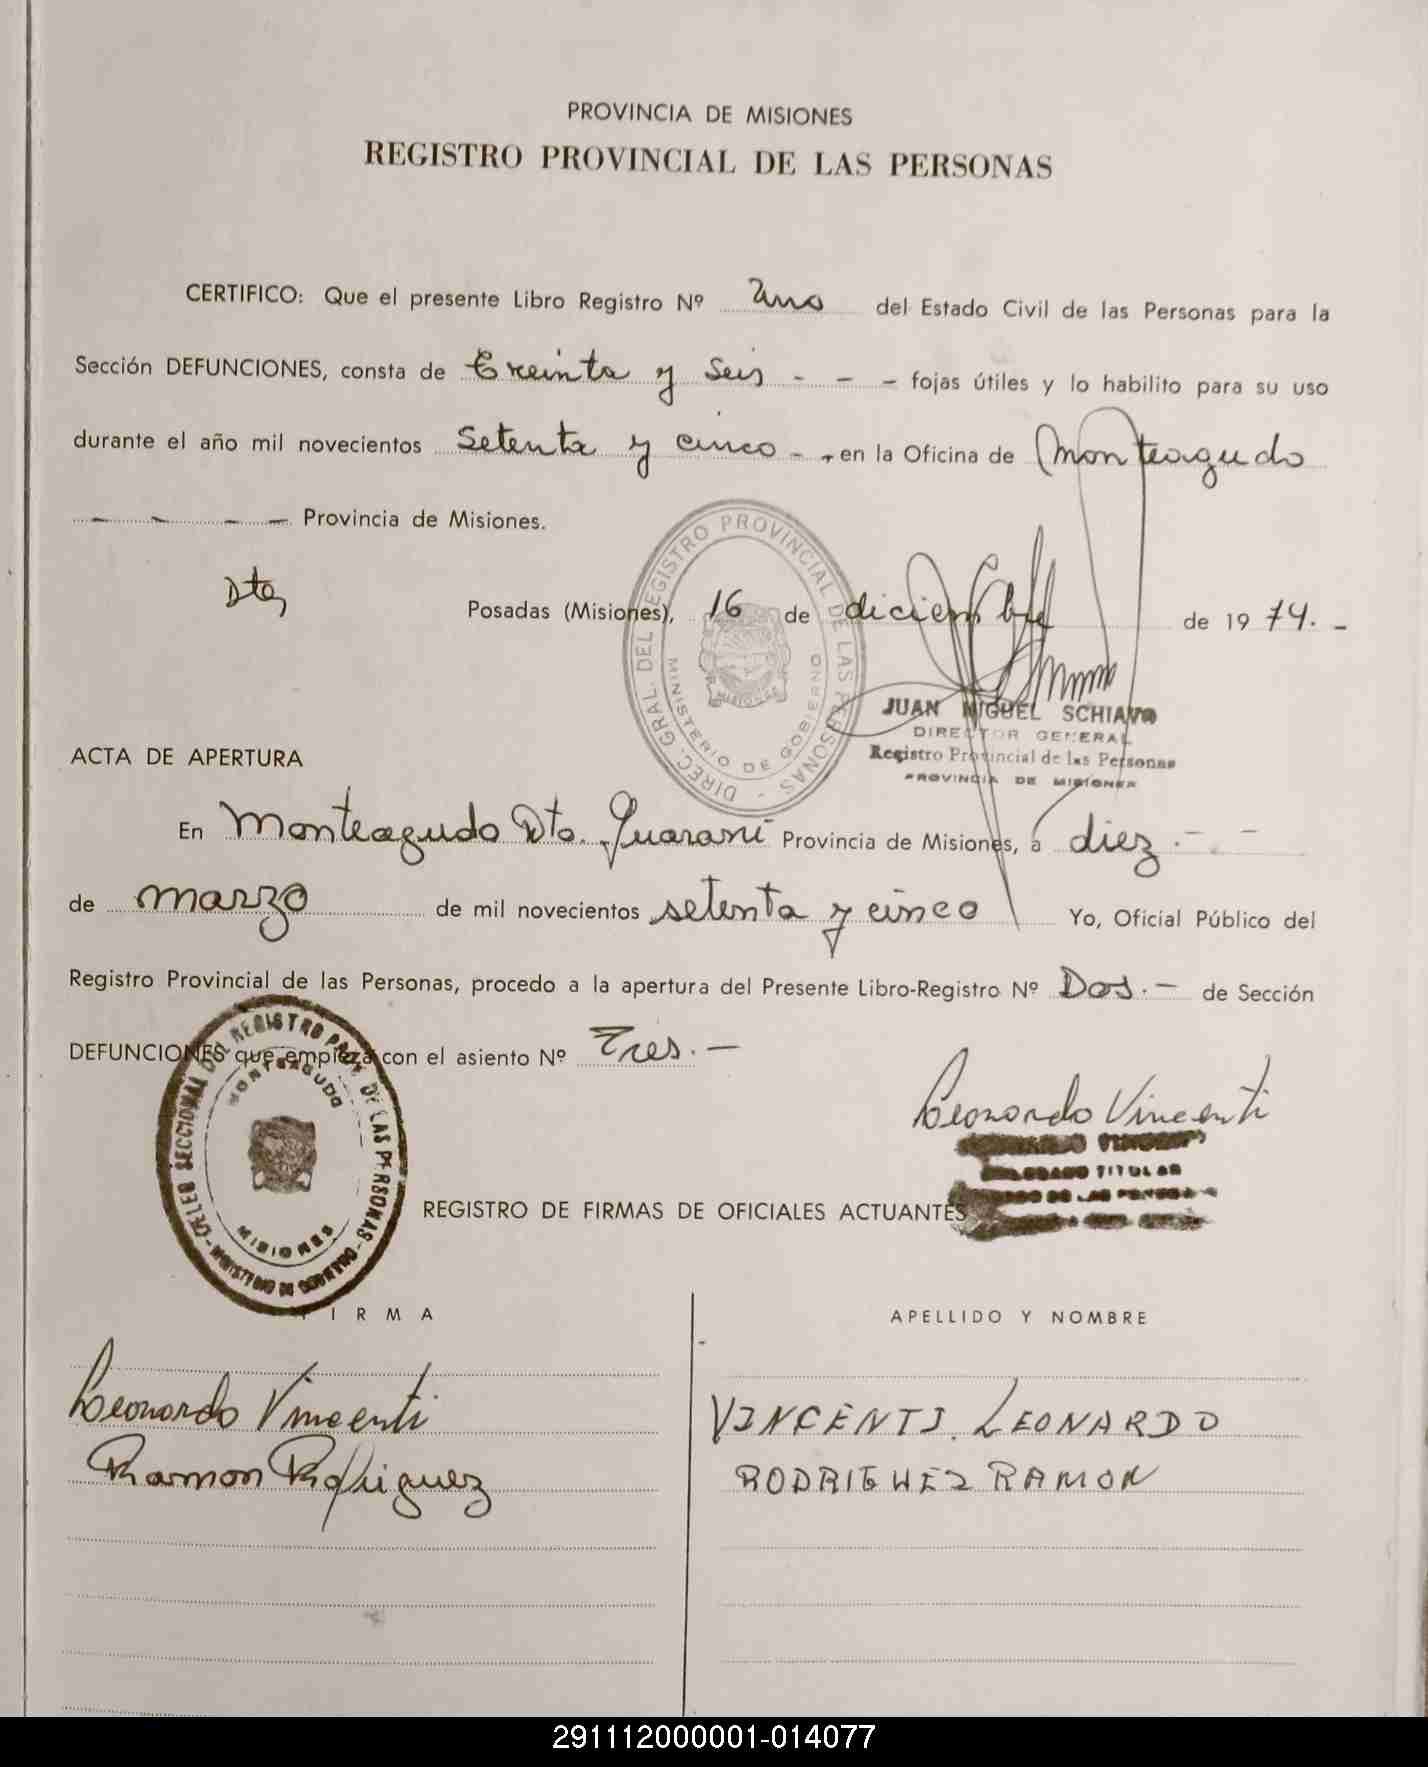 PROVINCIA DE MISIONES
REGISTRO PROVINCIAL DE LAS PERSONAS
CERTIFICO: Que el presente Libro Registro Nº Uno del Estado Civil de las Personas para la
Sección DEFUNCIONES, consta de treinta y seis - - - fojas útiles y lo habilito para su uso
durante el año mil novecientos setenta y cinco - - en la Oficina de Monteagudo
- - - - Provincia de Misiones.
Posadas (Misiones), 16 de diciembre de 1974. -
DIREC. GRAL. DEL REGISTRO PROVINCIAL DE LAS PERSONAS -
MINISTERIO DE GOBIERNO
MISIONES
JUAN MIGUEL SCHIAVO
DIRECTOR GENERAL
Registro Provincial de las Personas
PROVINCIA DE MISIONES
ACTA DE APERTURA
En Monteagudo Dto. Guaraní Provincia de Misiones, a diez. - -
de marzo de mil novecientos setenta y cinco Yo, Oficial Público del
Registro Provincial de las Personas, procedo a la apertura del Presente Libro-Registro Nº Dos. - de Sección
DEFUNCIONES que empieza con el asiento Nº Tres. -
SECCIONAL DEL REGISTRO PROV. DE LAS PERSONAS - MINISTERIO DE GOBIERNO -
MONTEAGUDO
MISIONES
Leonardo Vincenti
TITULAR
REGISTRO DE FIRMAS DE OFICIALES ACTUANTES
FIRMA APELLIDO Y NOMBRE
Leonardo Vincenti VINCENTI. LEONARDO
Ramon Rodriguez RODRIGUEZ RAMON
291112000001-014077